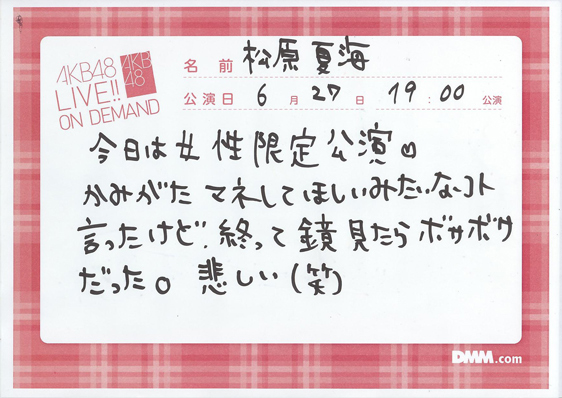 AKB48
LIVE!!
ON DEMAND
AKB
48
名前 松原夏海
公演日 6月27日 19:00 公演
今日は女性限定公演♡
かみがたマネしてほしいみたいなコト
言ったけど、終って鏡見たらボサボサ
だった。悲しい(笑)
DMM.com